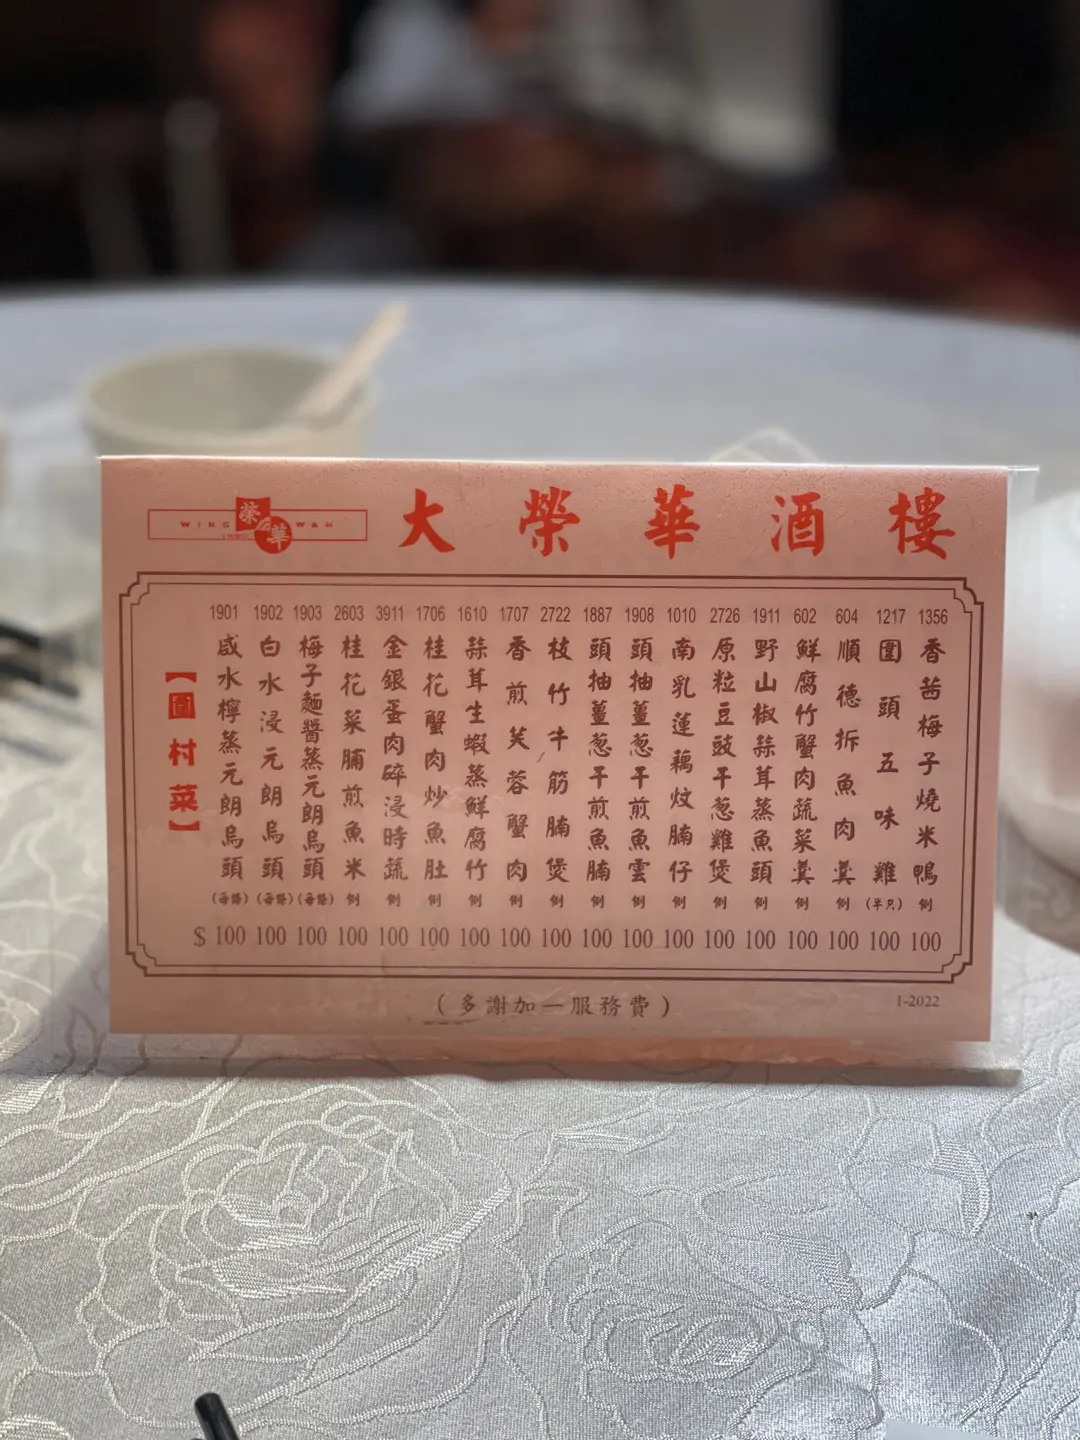 WING WAH
榮華
大榮華酒樓
1356 香茜梅子燒米鴨 例 100
1217 圍頭五味雞 (半只) 100
604 順德拆魚肉羹 例 100
602 鮮腐竹蟹肉蔬菜羹 例 100
1911 野山椒蒜茸蒸魚頭 例 100
2726 原粒豆豉干葱雞煲 例 100
1010 南乳蓮藕炆腩仔 例 100
1908 頭抽薑葱干煎魚雲 例 100
1887 頭抽薑葱干煎魚腩 例 100
2722 枝竹牛筋腩煲 例 100
1707 香煎芙蓉蟹肉 例 100
1610 蒜茸生蝦蒸鮮腐竹 例 100
1706 桂花蟹肉炒魚肚 例 100
3911 金銀蛋肉碎浸時蔬 例 100
2603 桂花菜脯煎魚米 例 100
1903 梅子麵醬蒸元朗烏頭 (每條) 100
1902 白水浸元朗烏頭 (每條) 100
1901 咸水檸蒸元朗烏頭 (每條) $ 100
【圍村菜】
(多謝加一服務費)
1-2022